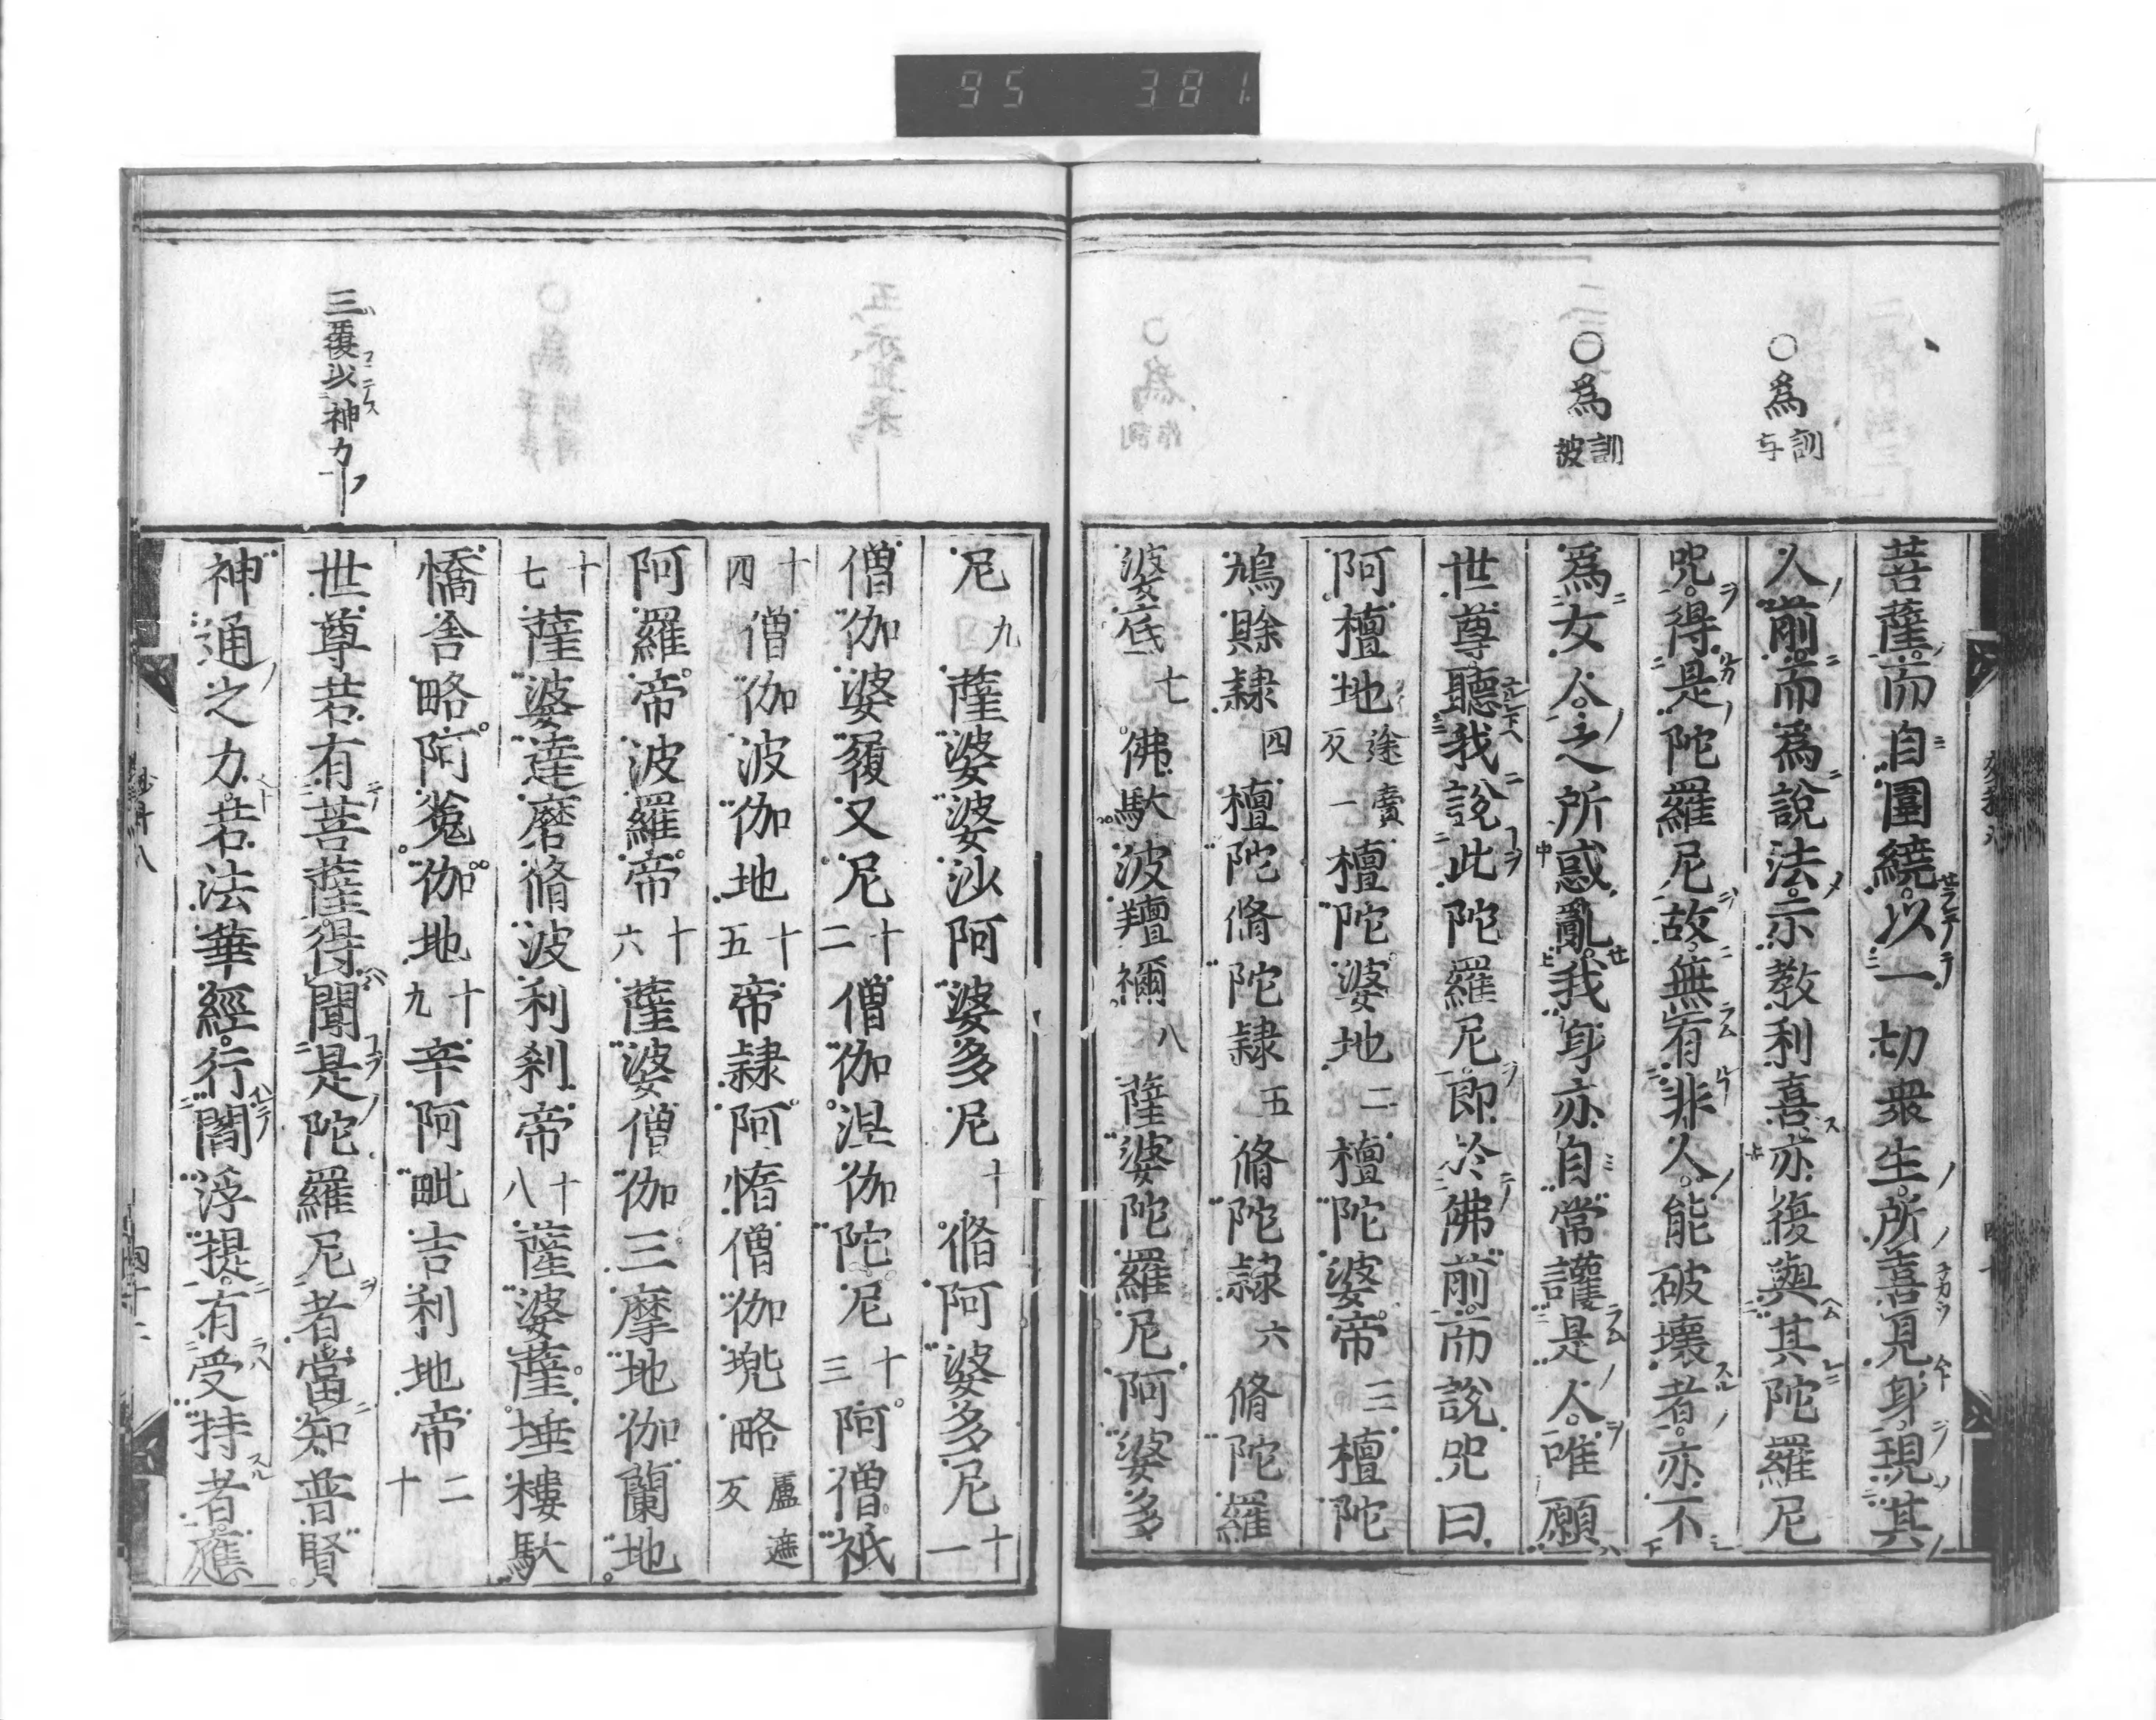 95 381
○為 訓与
○為 訓波
菩薩而自圍繞以一切衆生所喜見身現其
人前而為說法示教利喜亦復與其陀羅尼
咒得是陀羅尼故無有非人能破壞者亦不
為女人之所惑亂我身亦自常護是人唯願
世尊聽我說此陀羅尼即於佛前而說咒曰
阿檀地途賣反一檀陀婆地二檀陀婆帝三檀陀
鳩賖隷四檀陀脩陀隷五脩陀隷六脩陀羅
婆底七佛馱波羶禰八薩婆陀羅尼阿婆多
三復以神力
尼九薩婆婆沙阿婆多尼十脩阿婆多尼十一
僧伽婆履叉尼十二僧伽涅伽陀尼十三阿僧祇
十四僧伽波伽地十五帝隷阿惰僧伽兠略盧遮反
阿羅帝波羅帝十六薩婆僧伽三摩地伽蘭地
十七薩婆達磨脩波利剎帝十八薩婆薩埵樓馱
憍舍略阿㝹伽地十九辛阿毗吉利地帝二十
世尊若有菩薩得聞是陀羅尼者當知普賢
神通之力若法華經行閻浮提有受持者應